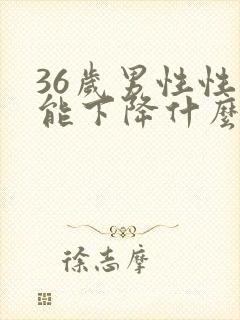 36歲男性性
能下降什麼
徐志摩